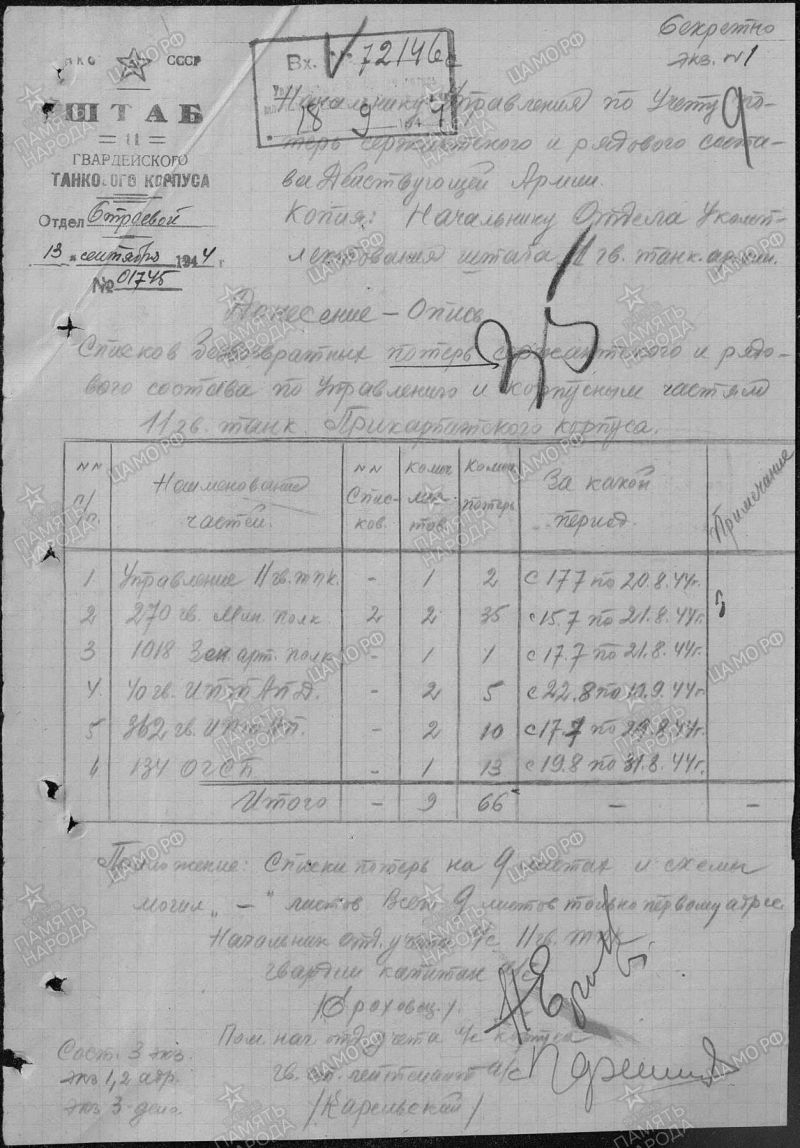 Секретно
экз. №1
НКО СССР
Вх. 72146с
18 9 194
ШТАБ
11
ГВАРДЕЙСКОГО
ТАНКОВОГО КОРПУСА
Отдел Строевой
13 " сентября 1944 г
№ 01745
Начальнику Управления по Учету по-
терь сержантского и рядового соста-
ва Действующей Армии.
Копия: Начальнику Отдела Укомп-
лектования штаба 11 гв. танк. армии.
9
Донесение – Опись
Списков Безвозвратных потерь сержантского и рядо-
вого состава по Управлению и корпусным частям
11 гв. танк. Прикарпатского корпуса.
NN п/п Наименование частей. NN Спис-ков Колич лис-тов Колич потерь За какой период. Примечание
1 Управление 11 гв. тпк. - 1 2 с 17.7 по 20.8.44г.
2 270 гв. мин. полк 2 2 35 с 15.7 по 21.8.44г.
3 1018 Зен. арт. полк - 1 1 с 17.7 по 21.8.44г.
4. - 2 5 с 22.8 по 9.44г.
5 362 гв. - 2 10 с 17.7 по 29.8.44г.
6 134 - 1 13 с 19.8 по 31.8.44г.
Итого - 9 66 - -
Приложение: Списки потерь на 9 листах и схемы
могил „ - " листов Всего 9 листов только первому адрес.
Начальник отд. учета л/с 11 гв. тпк
гвардии капитан а/с
Пом. нач. отд. учета л/с корпуса
гв. ст. лейтенант а/с
/Карельский/
Сост. 3 экз.
экз 1,2 адр.
экз 3-дело.
ПАМЯТЬ НАРОДА
ЦАМО.РФ